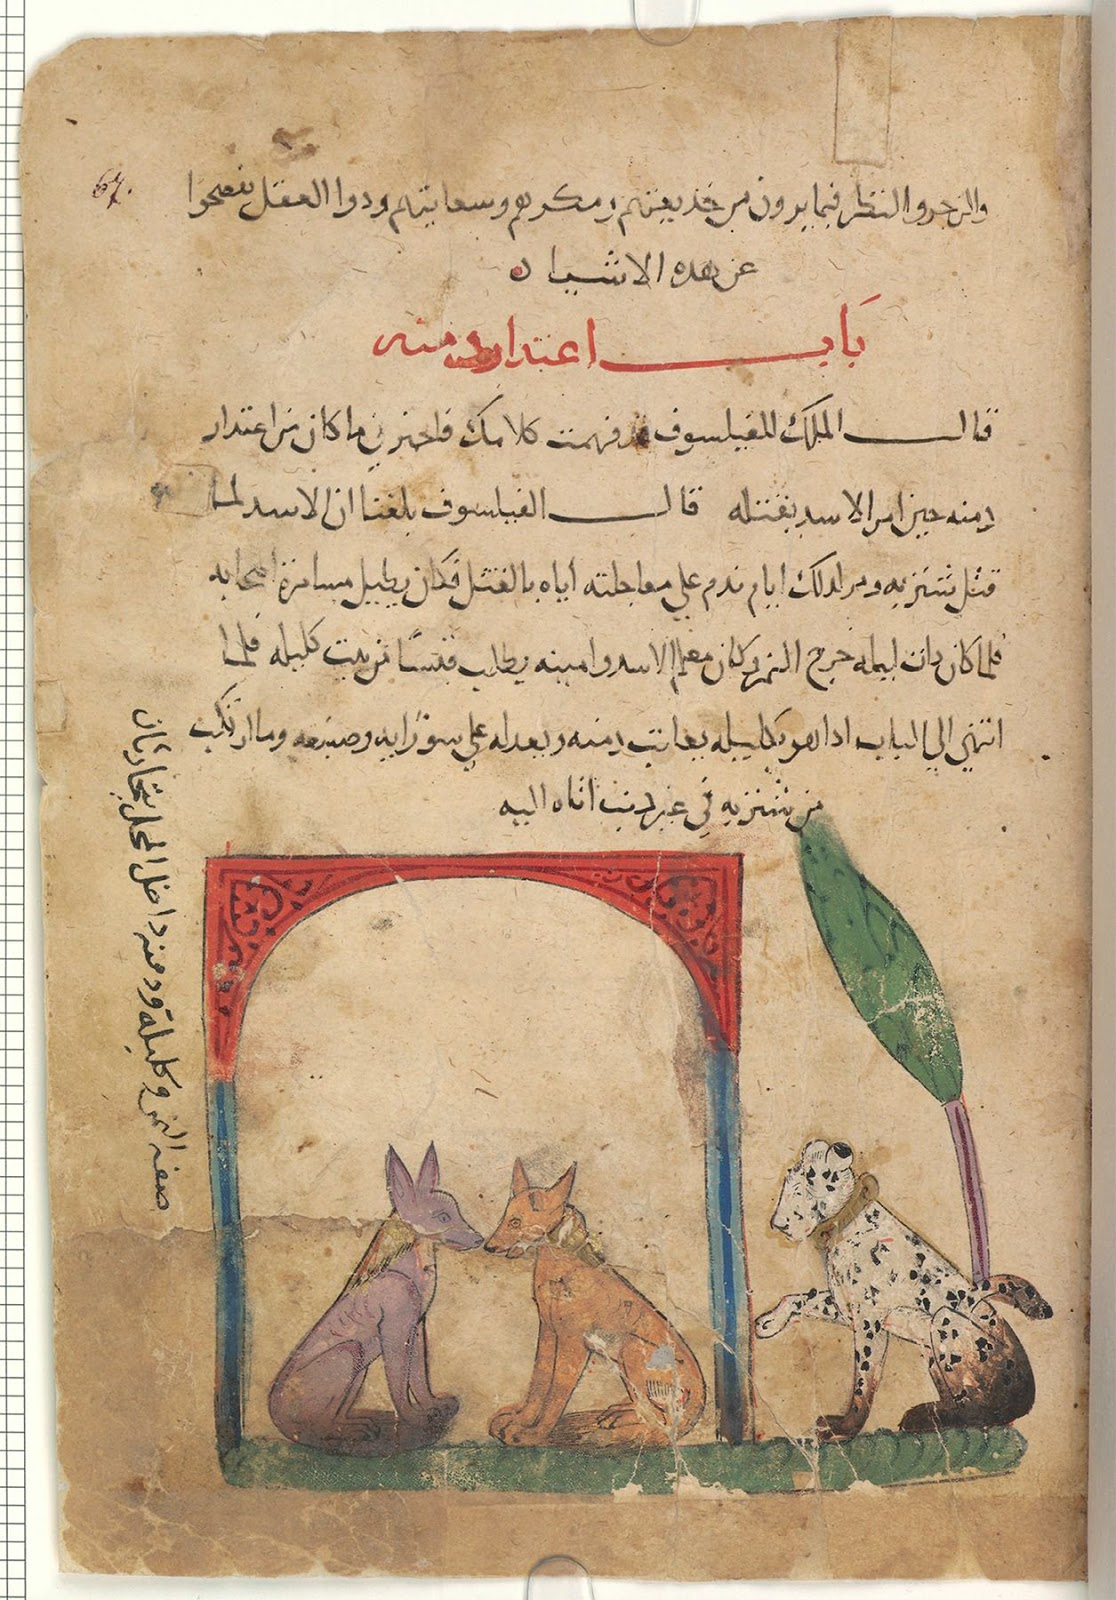 والزجر والنظر فيما يرون من خديعتهم ومكرهم وسعايتهم ودوا العقل يفصحوا
عن هده الاشيا ه
67.
باب اعتدار دمنه
قال الملك للفيلسوف قد فهمت كلامك فاخبرني ما كان من اعتدار
دمنه حين امر الاسد بقتله قال الفيلسوف بلغنا ان الاسد لما
قتل شنزبه ومر لدلك ايام ندم علي معاجلته اياه بالقتل فكان يطيل مسامرة اصحابه
فلما كان دات ليله خرج النمر وكان معلم الاسد وامينه يطلب قبسًا من بيت كليله فلما
انتهي الي الباب ادا هو بكليله يعاتب دمنه ويعدله علي سو رايه وصنيعه وما ارتكب
من شنزبه في غير دنب اتاه اليه
صفه النمر وكليلة ودمنه داخل المحل يتحاربان